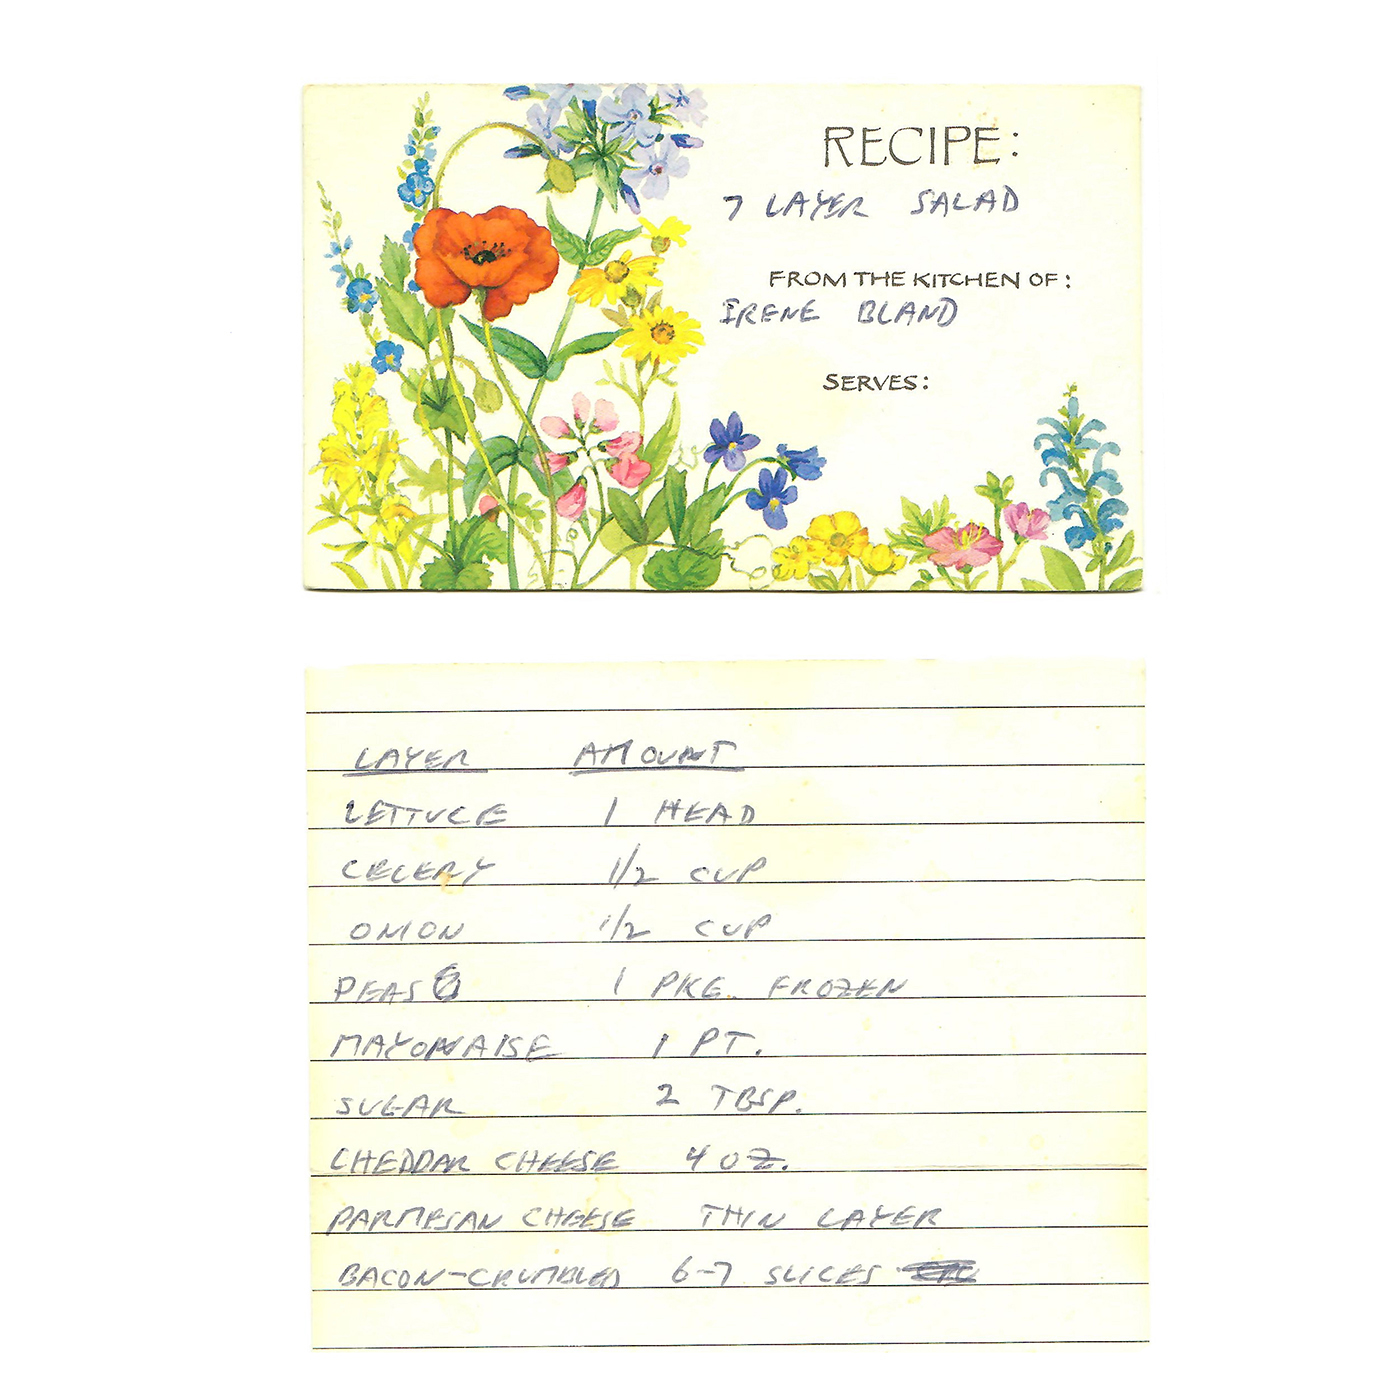 RECIPE:
7 LAYER SALAD
FROM THE KITCHEN OF:
IRENE BLAND
SERVES:
LAYER AMOUNT
LETTUCE 1 HEAD
CELERY 1/2 CUP
ONION 1/2 CUP
PEAS 1 PKG. FROZEN
MAYONNAISE 1 PT.
SUGAR 2 TBSP.
CHEDDAR CHEESE 4 OZ.
PARMESAN CHEESE THIN LAYER
BACON-CRUMBLED 6-7 SLICES